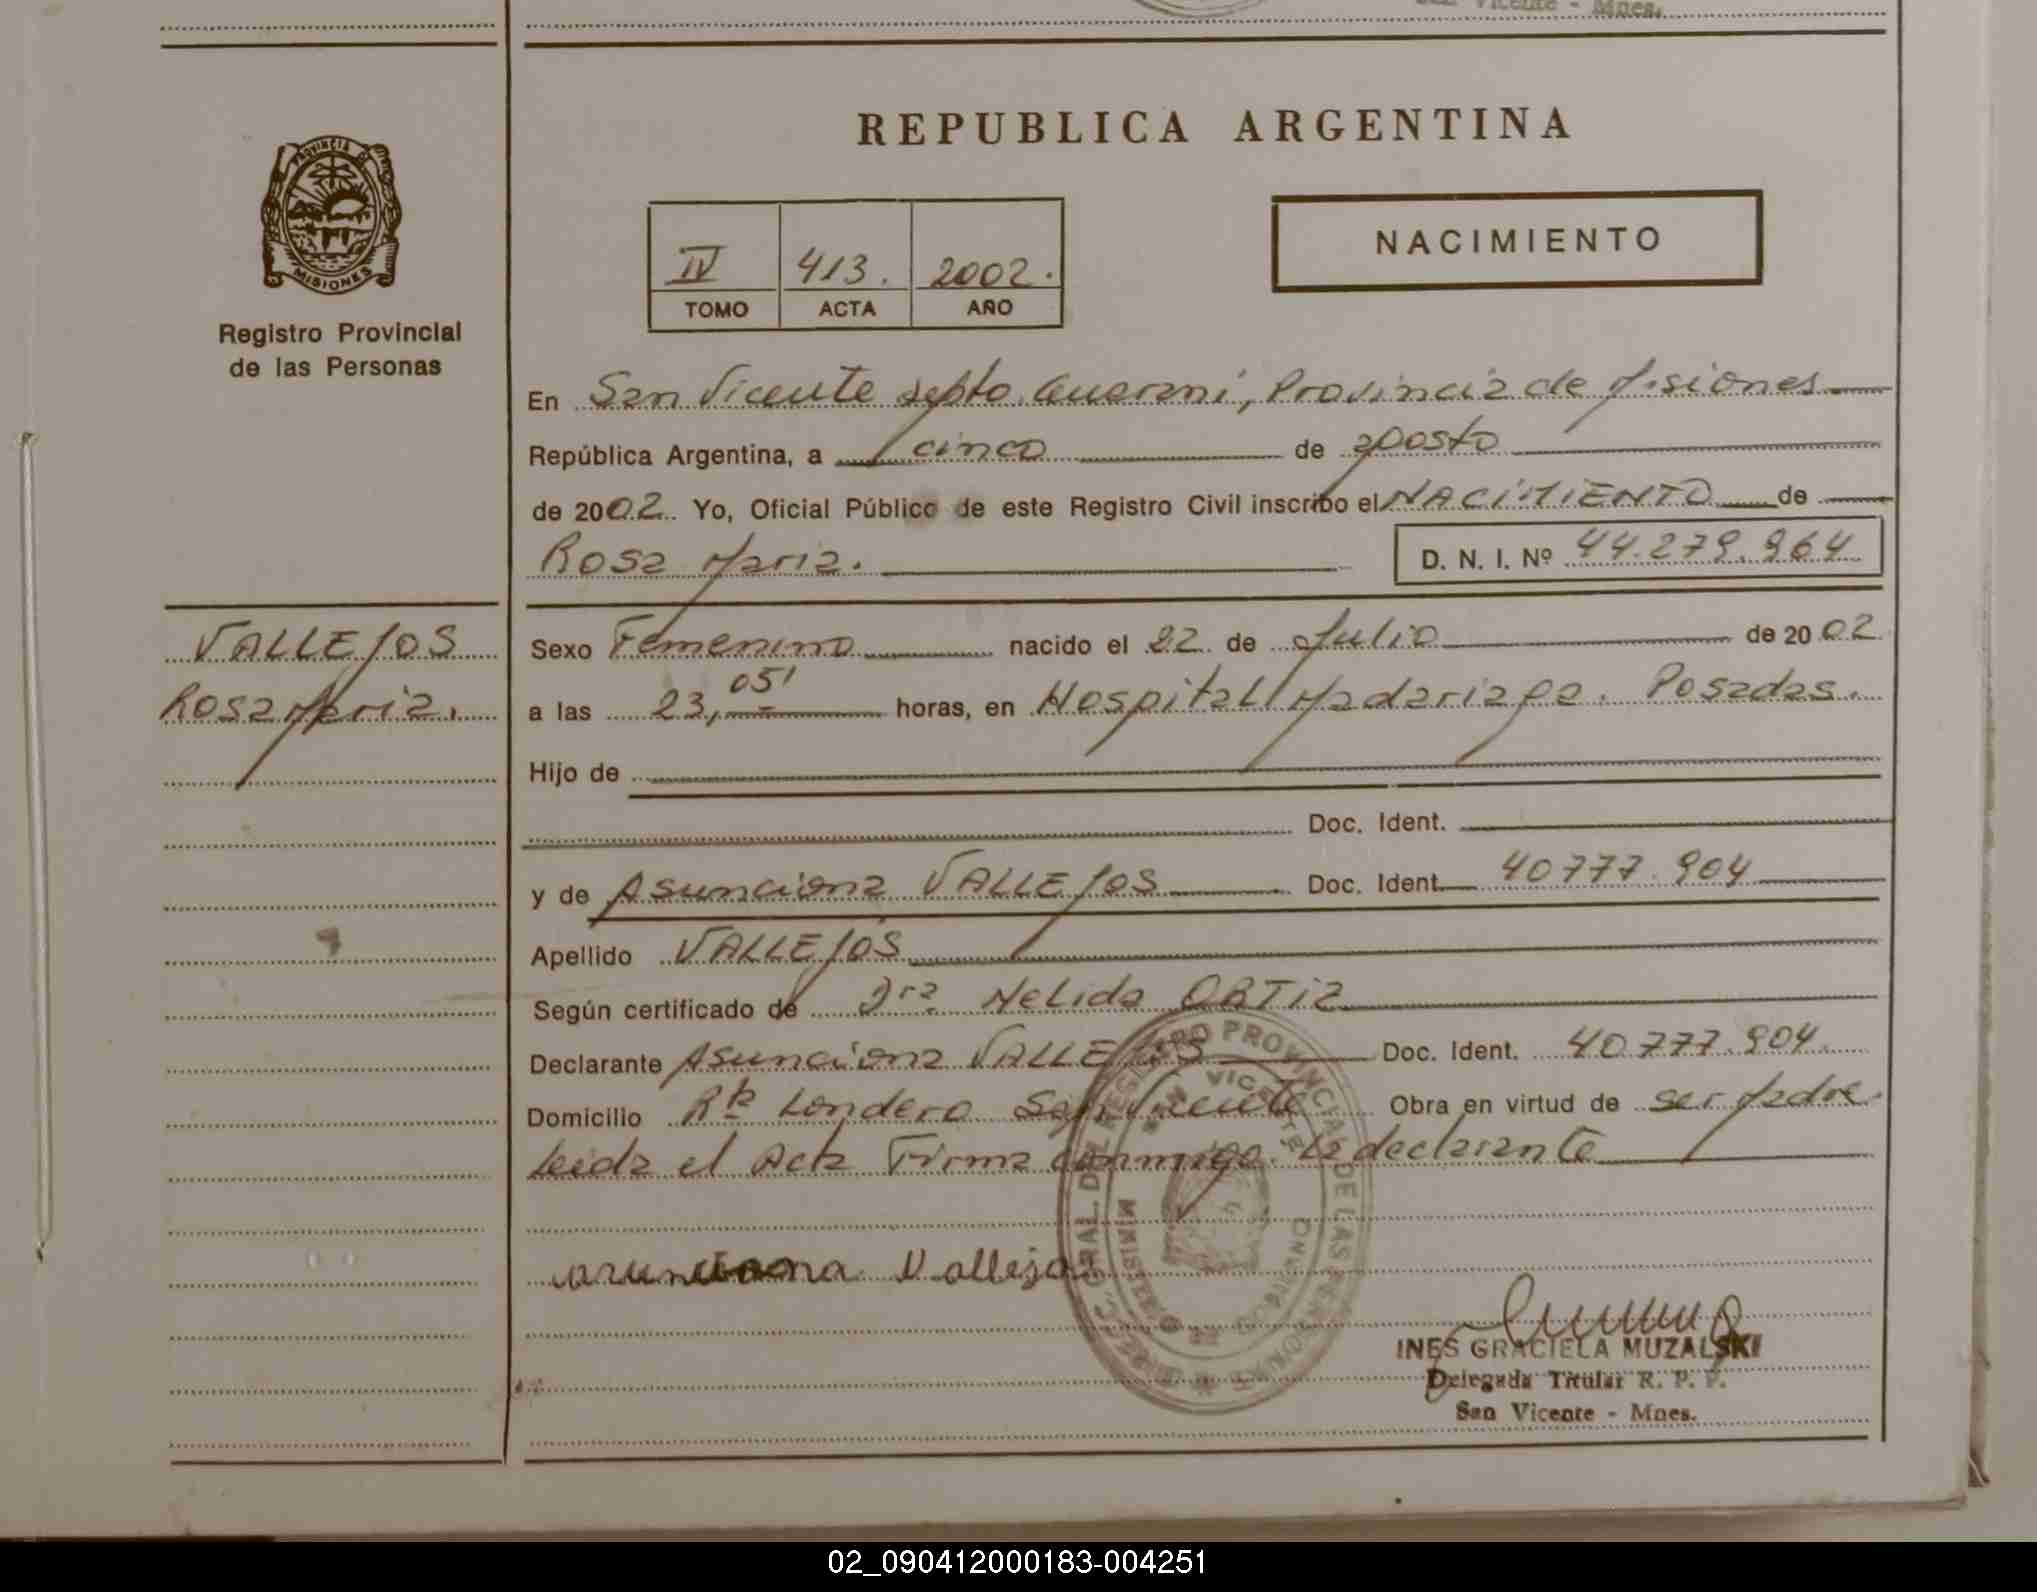 San Vicente - Mnes.
REPUBLICA ARGENTINA
PROVINCIA DE
MISIONES
Registro Provincial
de las Personas
NACIMIENTO
IV 413. 2002.
TOMO ACTA AÑO
En San Vicente Depto. Guarani, Provincia de Misiones
República Argentina, a cinco de agosto
de 2002. Yo, Oficial Público de este Registro Civil inscribo el NACIMIENTO de
Rosa Maria. D. N. I. Nº 44.279.964
VALLEJOS
Rosa Maria.
Sexo Femenino nacido el 22 de Julio de 2002
a las 23,05' horas, en Hospital Madariaga. Posadas.
Hijo de
Doc. Ident.
y de Asunciona VALLEJOS Doc. Ident. 40777.904
Apellido VALLEJOS
Según certificado de Dra Nelida ORTIZ
Declarante Asunciona VALLEJOS Doc. Ident. 40.777.904.
Domicilio Londero San Vicente Obra en virtud de ser Madre.
Leida el Acta Firma conmigo la declarante
asunciona Vallejo
REGISTRO PROVINCIAL DE LAS PERSONAS
SAN VICENTE
INES GRACIELA MUZALSKI
Delegada Titular R. P. P.
San Vicente - Mnes.
02_090412000183-004251